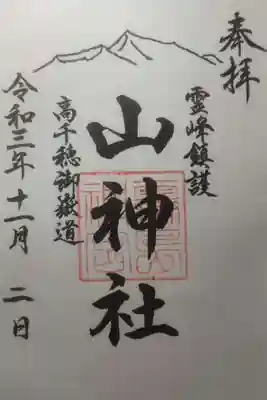 奉拝
霊峰鎮護
山神社
高千穂御嶽道
令和三年十一月二日